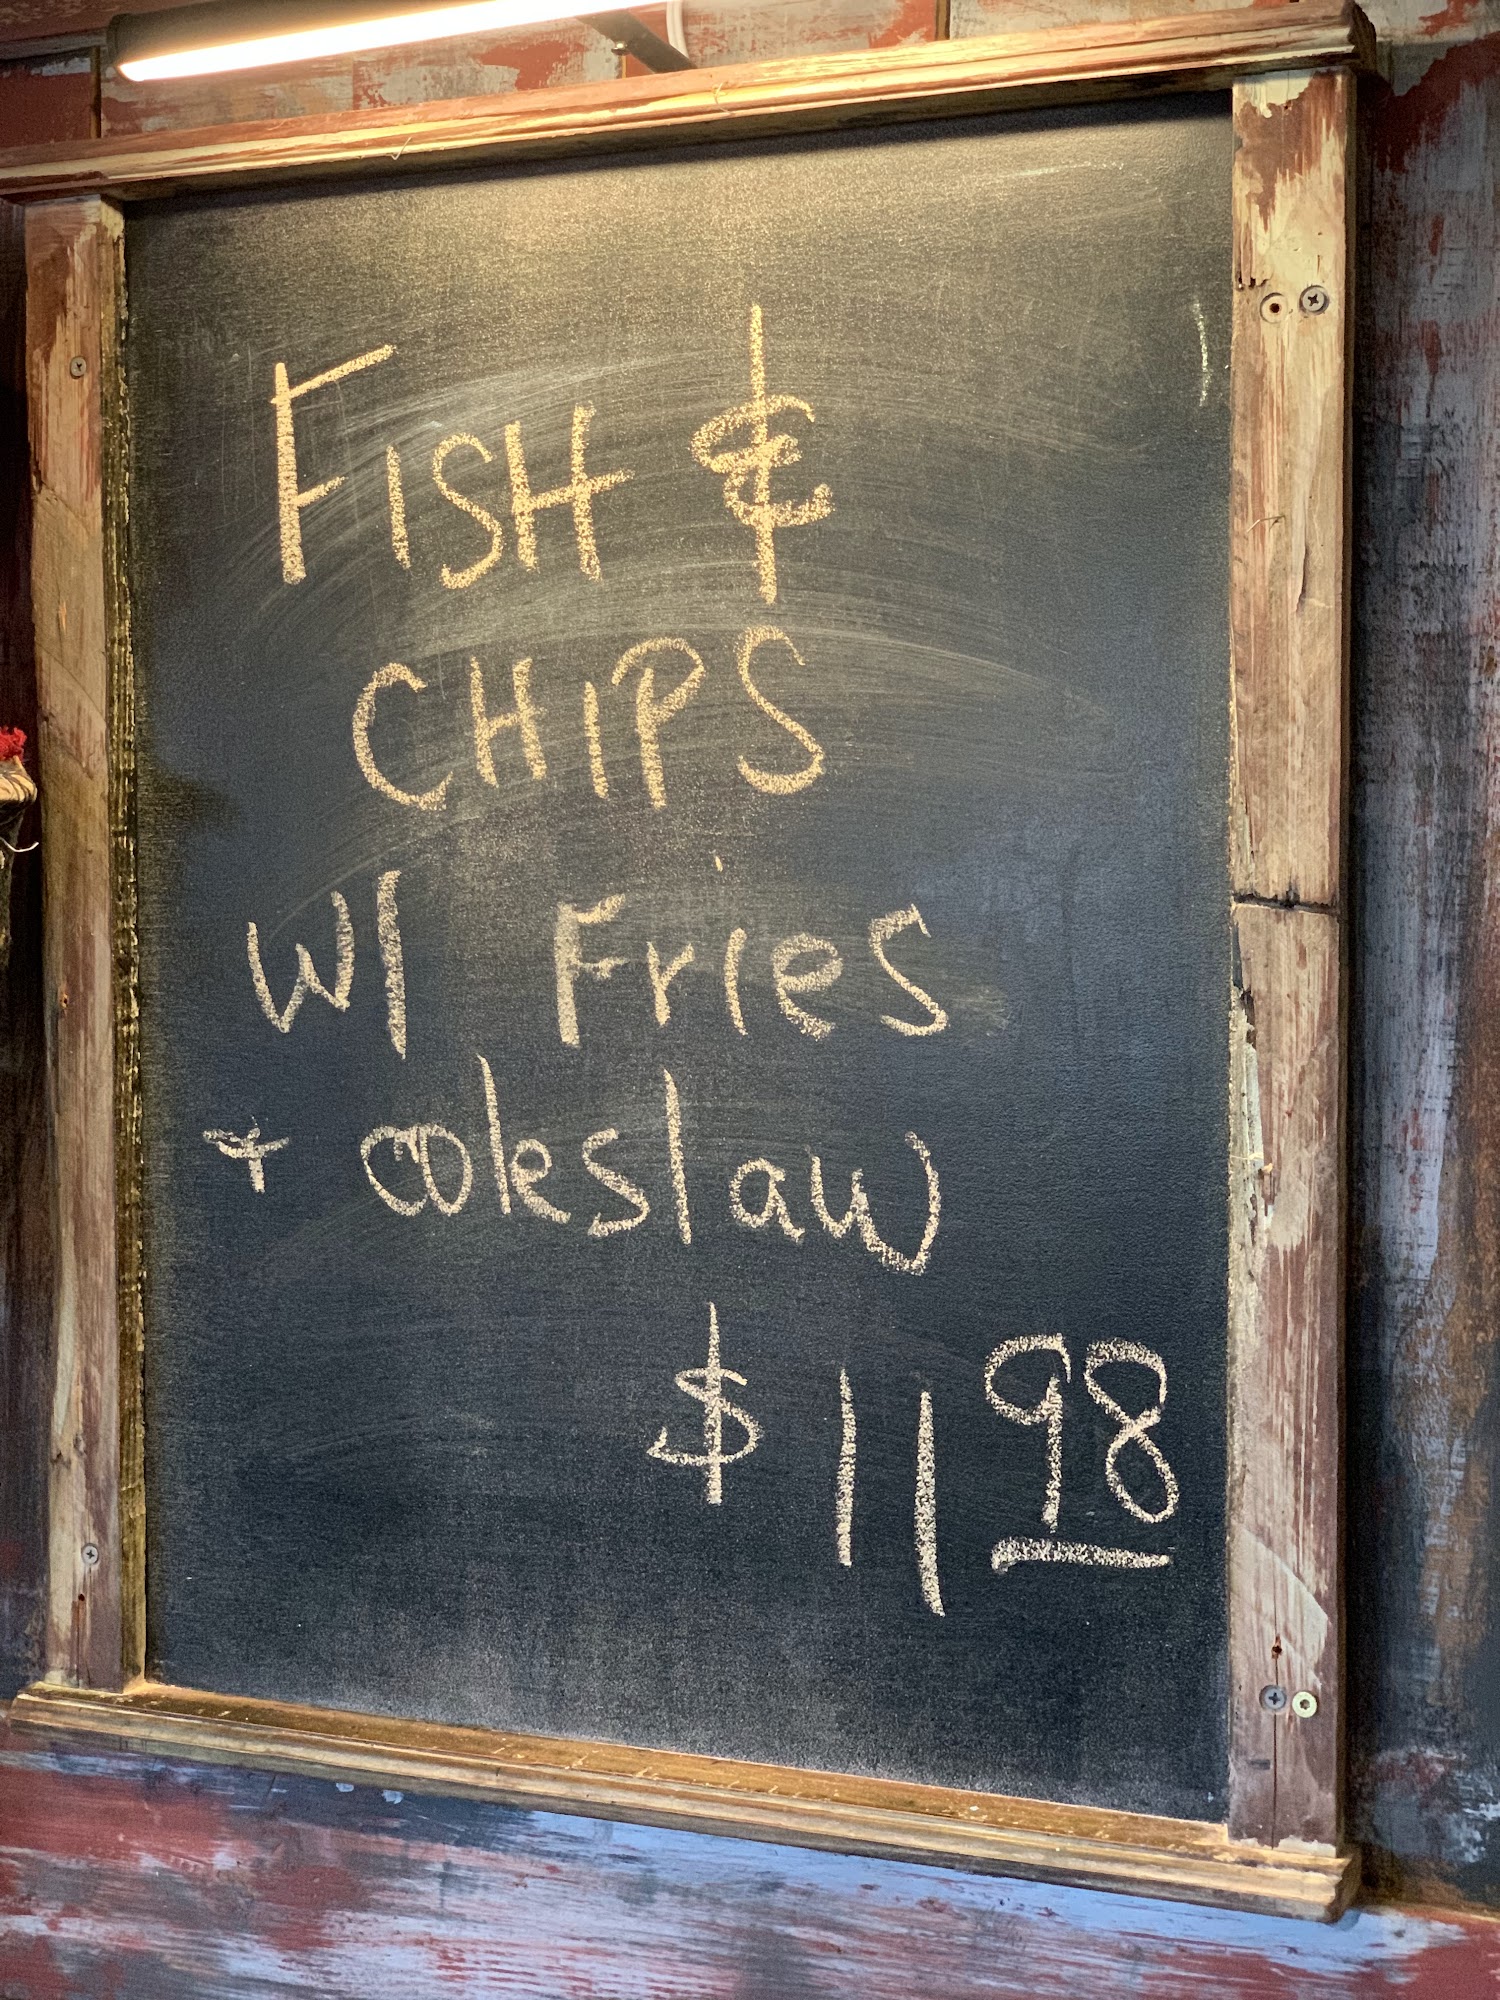 FISH &
CHIPS
W/ Fries
+ coleslaw
$ 11 98